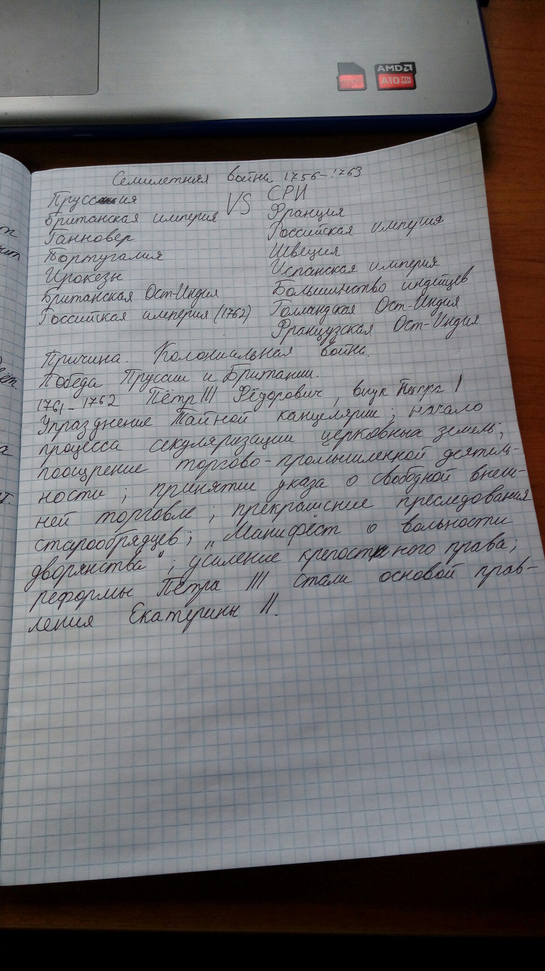 AMD
A10
Семилетняя война 1756-1763
Пруссия VS СРИ
Британская империя Франция
Ганновер Российская империя
Португалия Швеция
Ирокезы Испанская империя
Британская Ост-Индия Большинство индейцев
Российская империя (1762) Голандская Ост-Индия
Французская Ост-Индия
Причина. Колониальная война.
Победа Пруссии и Британии.
1761-1762 Пётр III Фёдорович, внук Петра I
Упразднение Тайной канцелярии; начало
процесса секуляризации церковных земель;
поощрение торгово-промышленной деятель-
ности; принятие указа о свободной внеш-
ней торговле; прекращение преследования
старообрядцев; „Манифест о вольности
дворянства“; усиление крепостного права;
реформы Петра III стали основой прав-
ления Екатерины II.